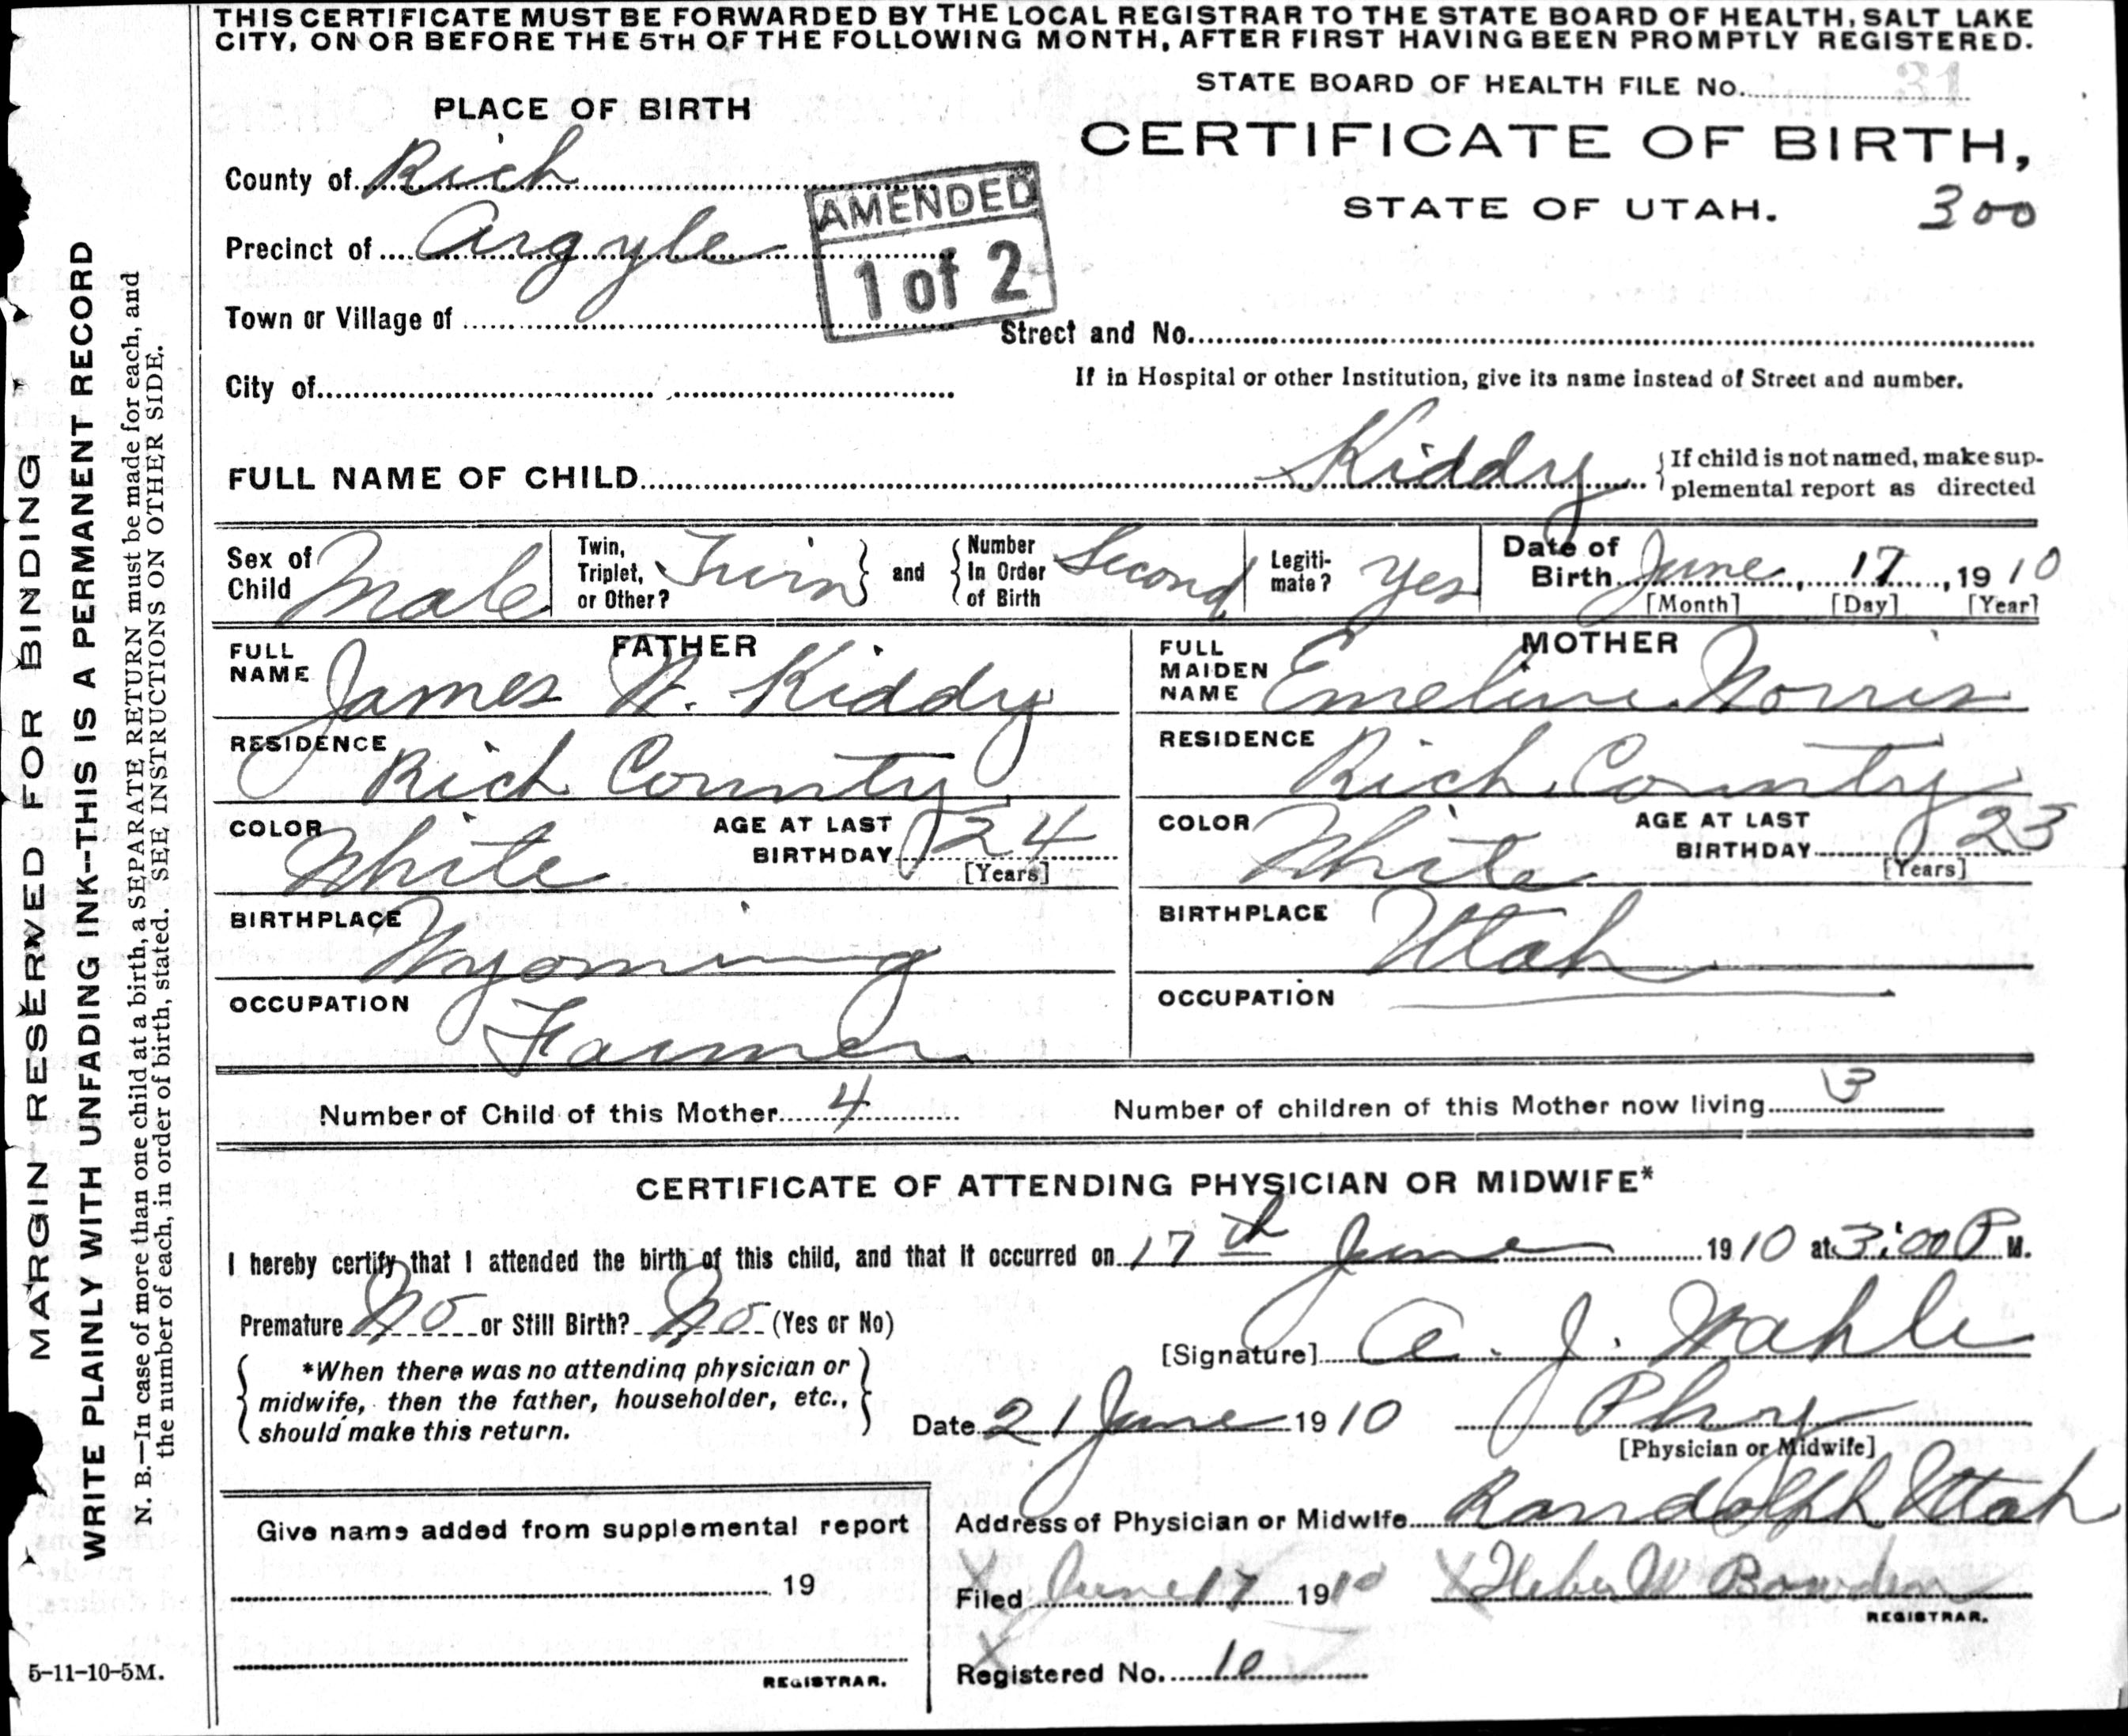 THIS CERTIFICATE MUST BE FORWARDED BY THE LOCAL REGISTRAR TO THE STATE BOARD OF HEALTH, SALT LAKE
CITY, ON OR BEFORE THE 5TH OF THE FOLLOWING MONTH, AFTER FIRST HAVING BEEN PROMPTLY REGISTERED.
STATE BOARD OF HEALTH FILE No. 31
PLACE OF BIRTH
CERTIFICATE OF BIRTH,
STATE OF UTAH. 300
County of Rich
Precinct of Argyle
AMENDED
1 of 2
Town or Village of
Street and No.
City of
If in Hospital or other Institution, give its name instead of Street and number.
FULL NAME OF CHILD Kiddy
If child is not named, make sup-
plemental report as directed
Sex of Child Male
Twin, Triplet, or Other? Twin and Number In Order of Birth Second
Legiti-mate? Yes
Date of Birth June, 17, 1910
[Month] [Day] [Year]
FATHER
FULL NAME James N. Kiddy
RESIDENCE Rich County
COLOR White
AGE AT LAST BIRTHDAY 24
[Years]
BIRTHPLACE Wyoming
OCCUPATION Farmer
MOTHER
FULL MAIDEN NAME Emeline Norris
RESIDENCE Rich County
COLOR White
AGE AT LAST BIRTHDAY 23
[Years]
BIRTHPLACE Utah
OCCUPATION
Number of Child of this Mother 4
Number of children of this Mother now living 3
CERTIFICATE OF ATTENDING PHYSICIAN OR MIDWIFE*
I hereby certify that I attended the birth of this child, and that it occurred on 17th June 1910 at 3:00 P M.
Premature No or Still Birth? No (Yes or No)
*When there was no attending physician or
midwife, then the father, householder, etc.,
should make this return.
[Signature] A. J. Wahle
Date 21 June 1910 Phy
[Physician or Midwife]
Address of Physician or Midwife Randolph Utah
Give name added from supplemental report
19
REGISTRAR.
Filed June 17 1910 Heber W Bowden
REGISTRAR.
Registered No. 10
MARGIN RESERVED FOR BINDING
WRITE PLAINLY WITH UNFADING INK--THIS IS A PERMANENT RECORD
N. B.—In case of more than one child at a birth, a SEPARATE RETURN must be made for each, and
the number of each, in order of birth, stated. SEE INSTRUCTIONS ON OTHER SIDE.
5-11-10-5M.